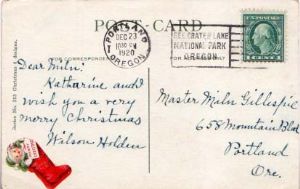 POST CARD
PORTLAND
DEC 23
1030 PM
1920
OREGON
SEE CRATER LANE
NATIONAL PARK
OREGON
FOR CORRESPONDENCE
Series No. 323 Christmas Designs.
Dear Miln:
Katharine and I
wish you a very
merry Christmas
Wilson Holden
Master Miln Gillespie
658 Mountain Blvd
Portland
Ore.